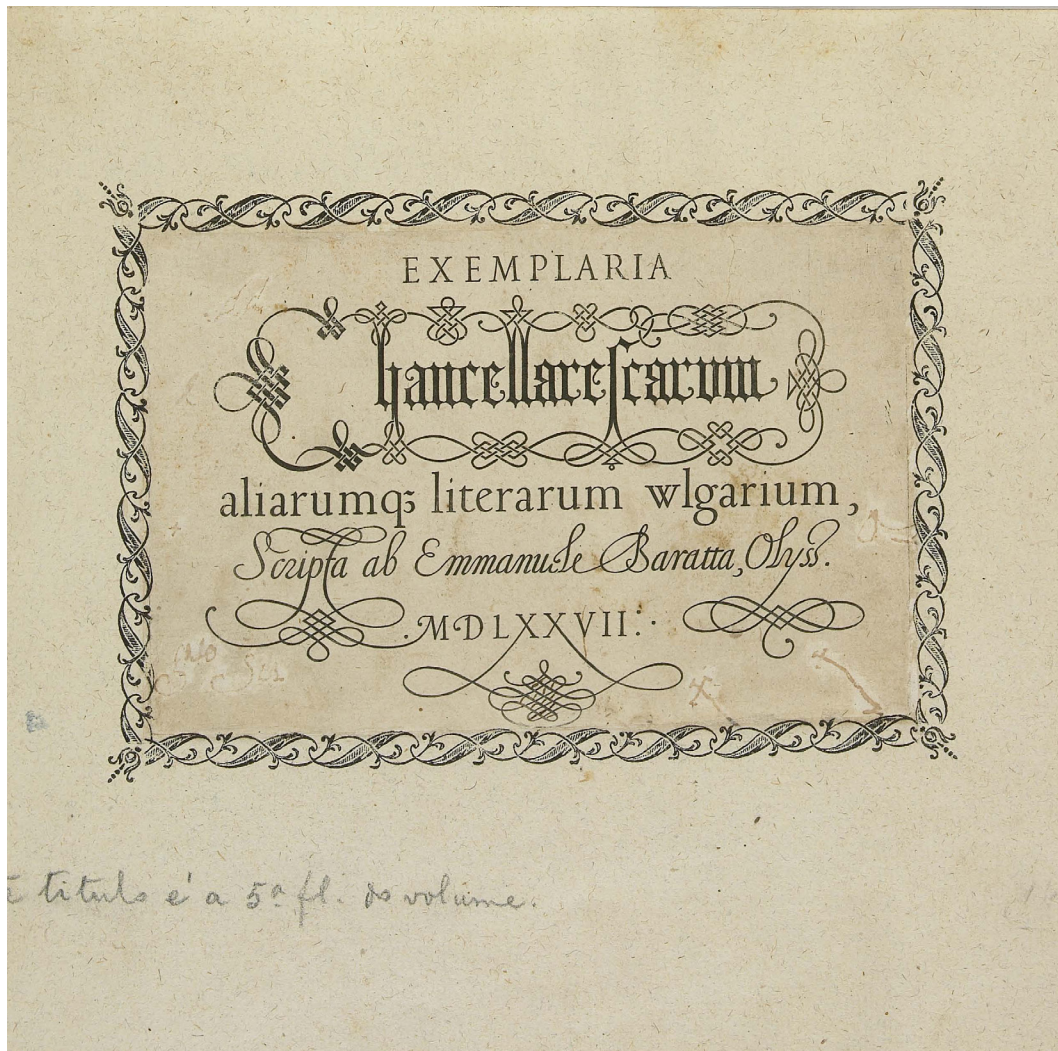 EXEMPLARIA
Chancellareſcarum
aliarumqꝫ literarum wlgarium,
Scripta ab Emmanuele Baratta, Olyss.
.MDLXXVII:·
titulo é a 5ª fl. do volume.